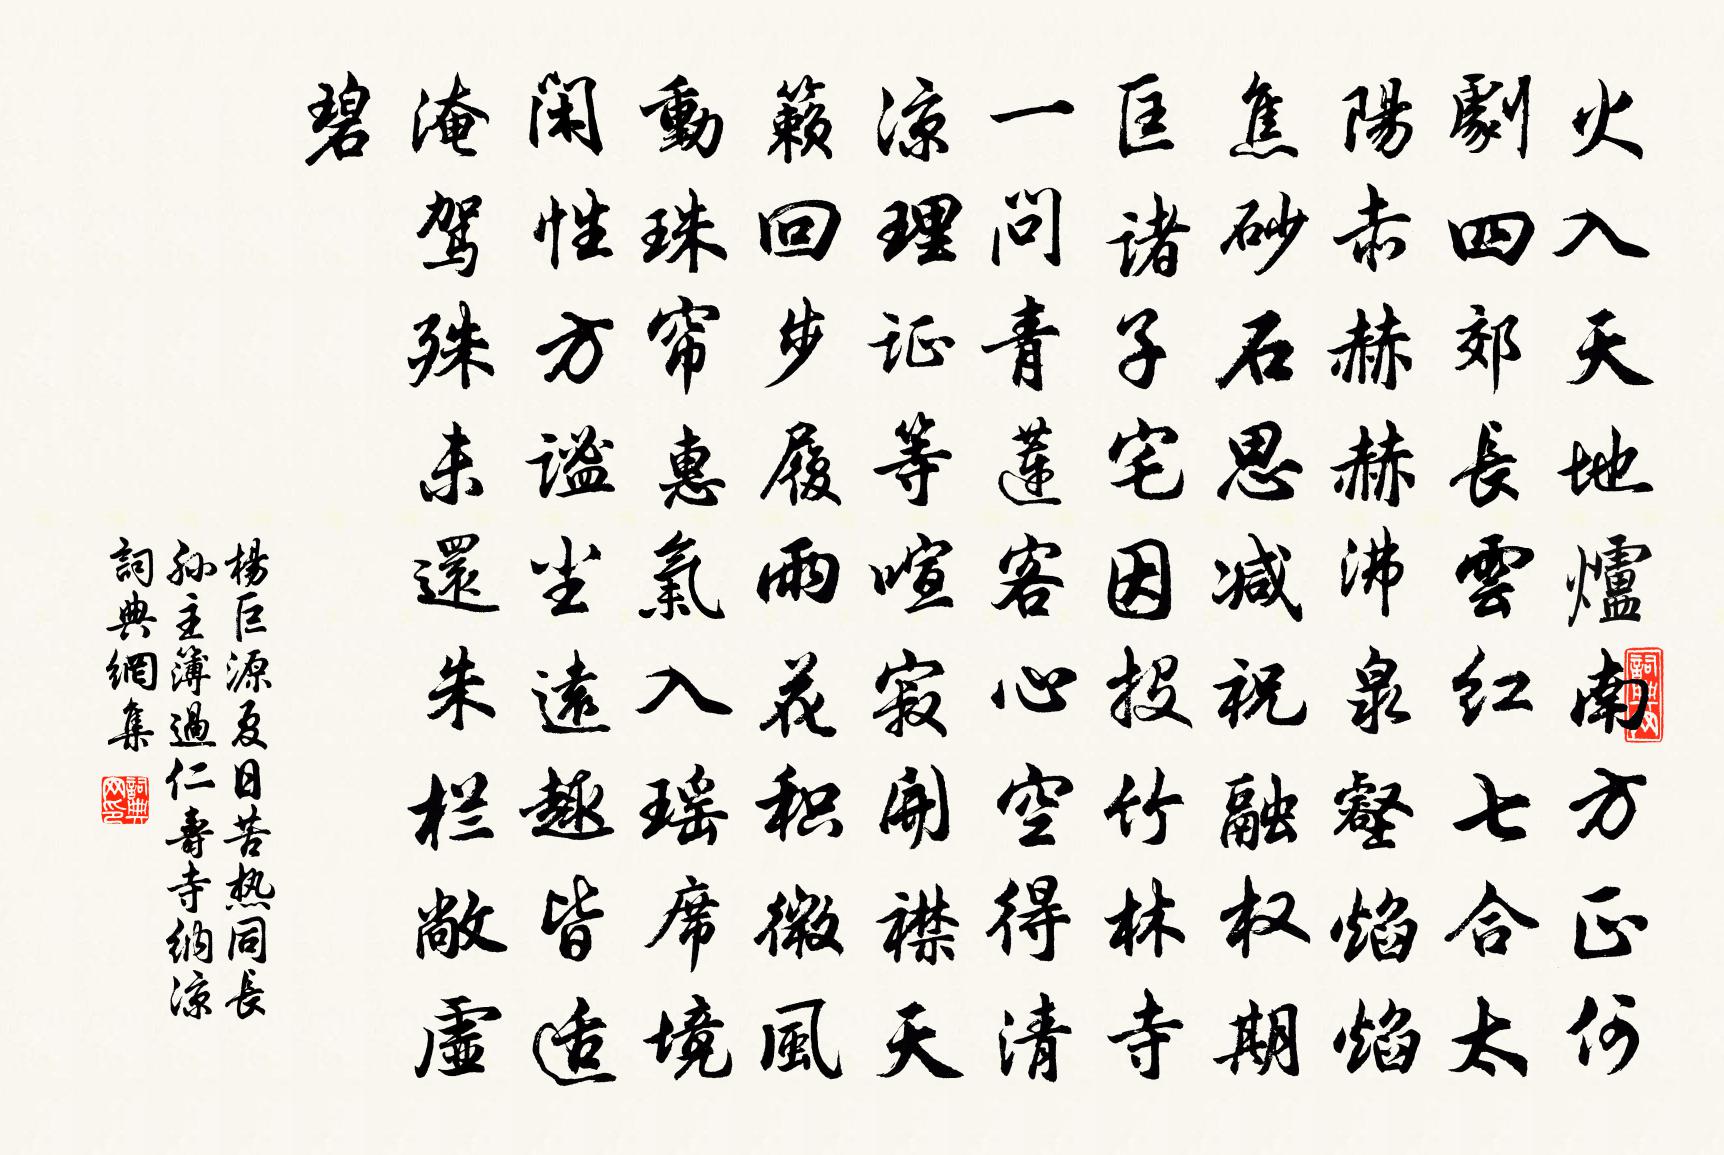 火入天地爐南方正何
劇四郊長雲红七合太
陽赤赫赫沸泉壑焰焰
焦砂石思减祝融权期
匡諸子宅因投竹林寺
一問青蓮客心空得清
凉理证等喧寂開襟天
籁回步履雨花积微風
動珠帘惠氣入瑶席境
闲性方谧坐遠趣皆适
淹驾殊未還朱栏敞虛
碧
楊巨源夏日苦热同長
孙主簿過仁壽寺納凉
詞典網集
詞典网
詞典网印